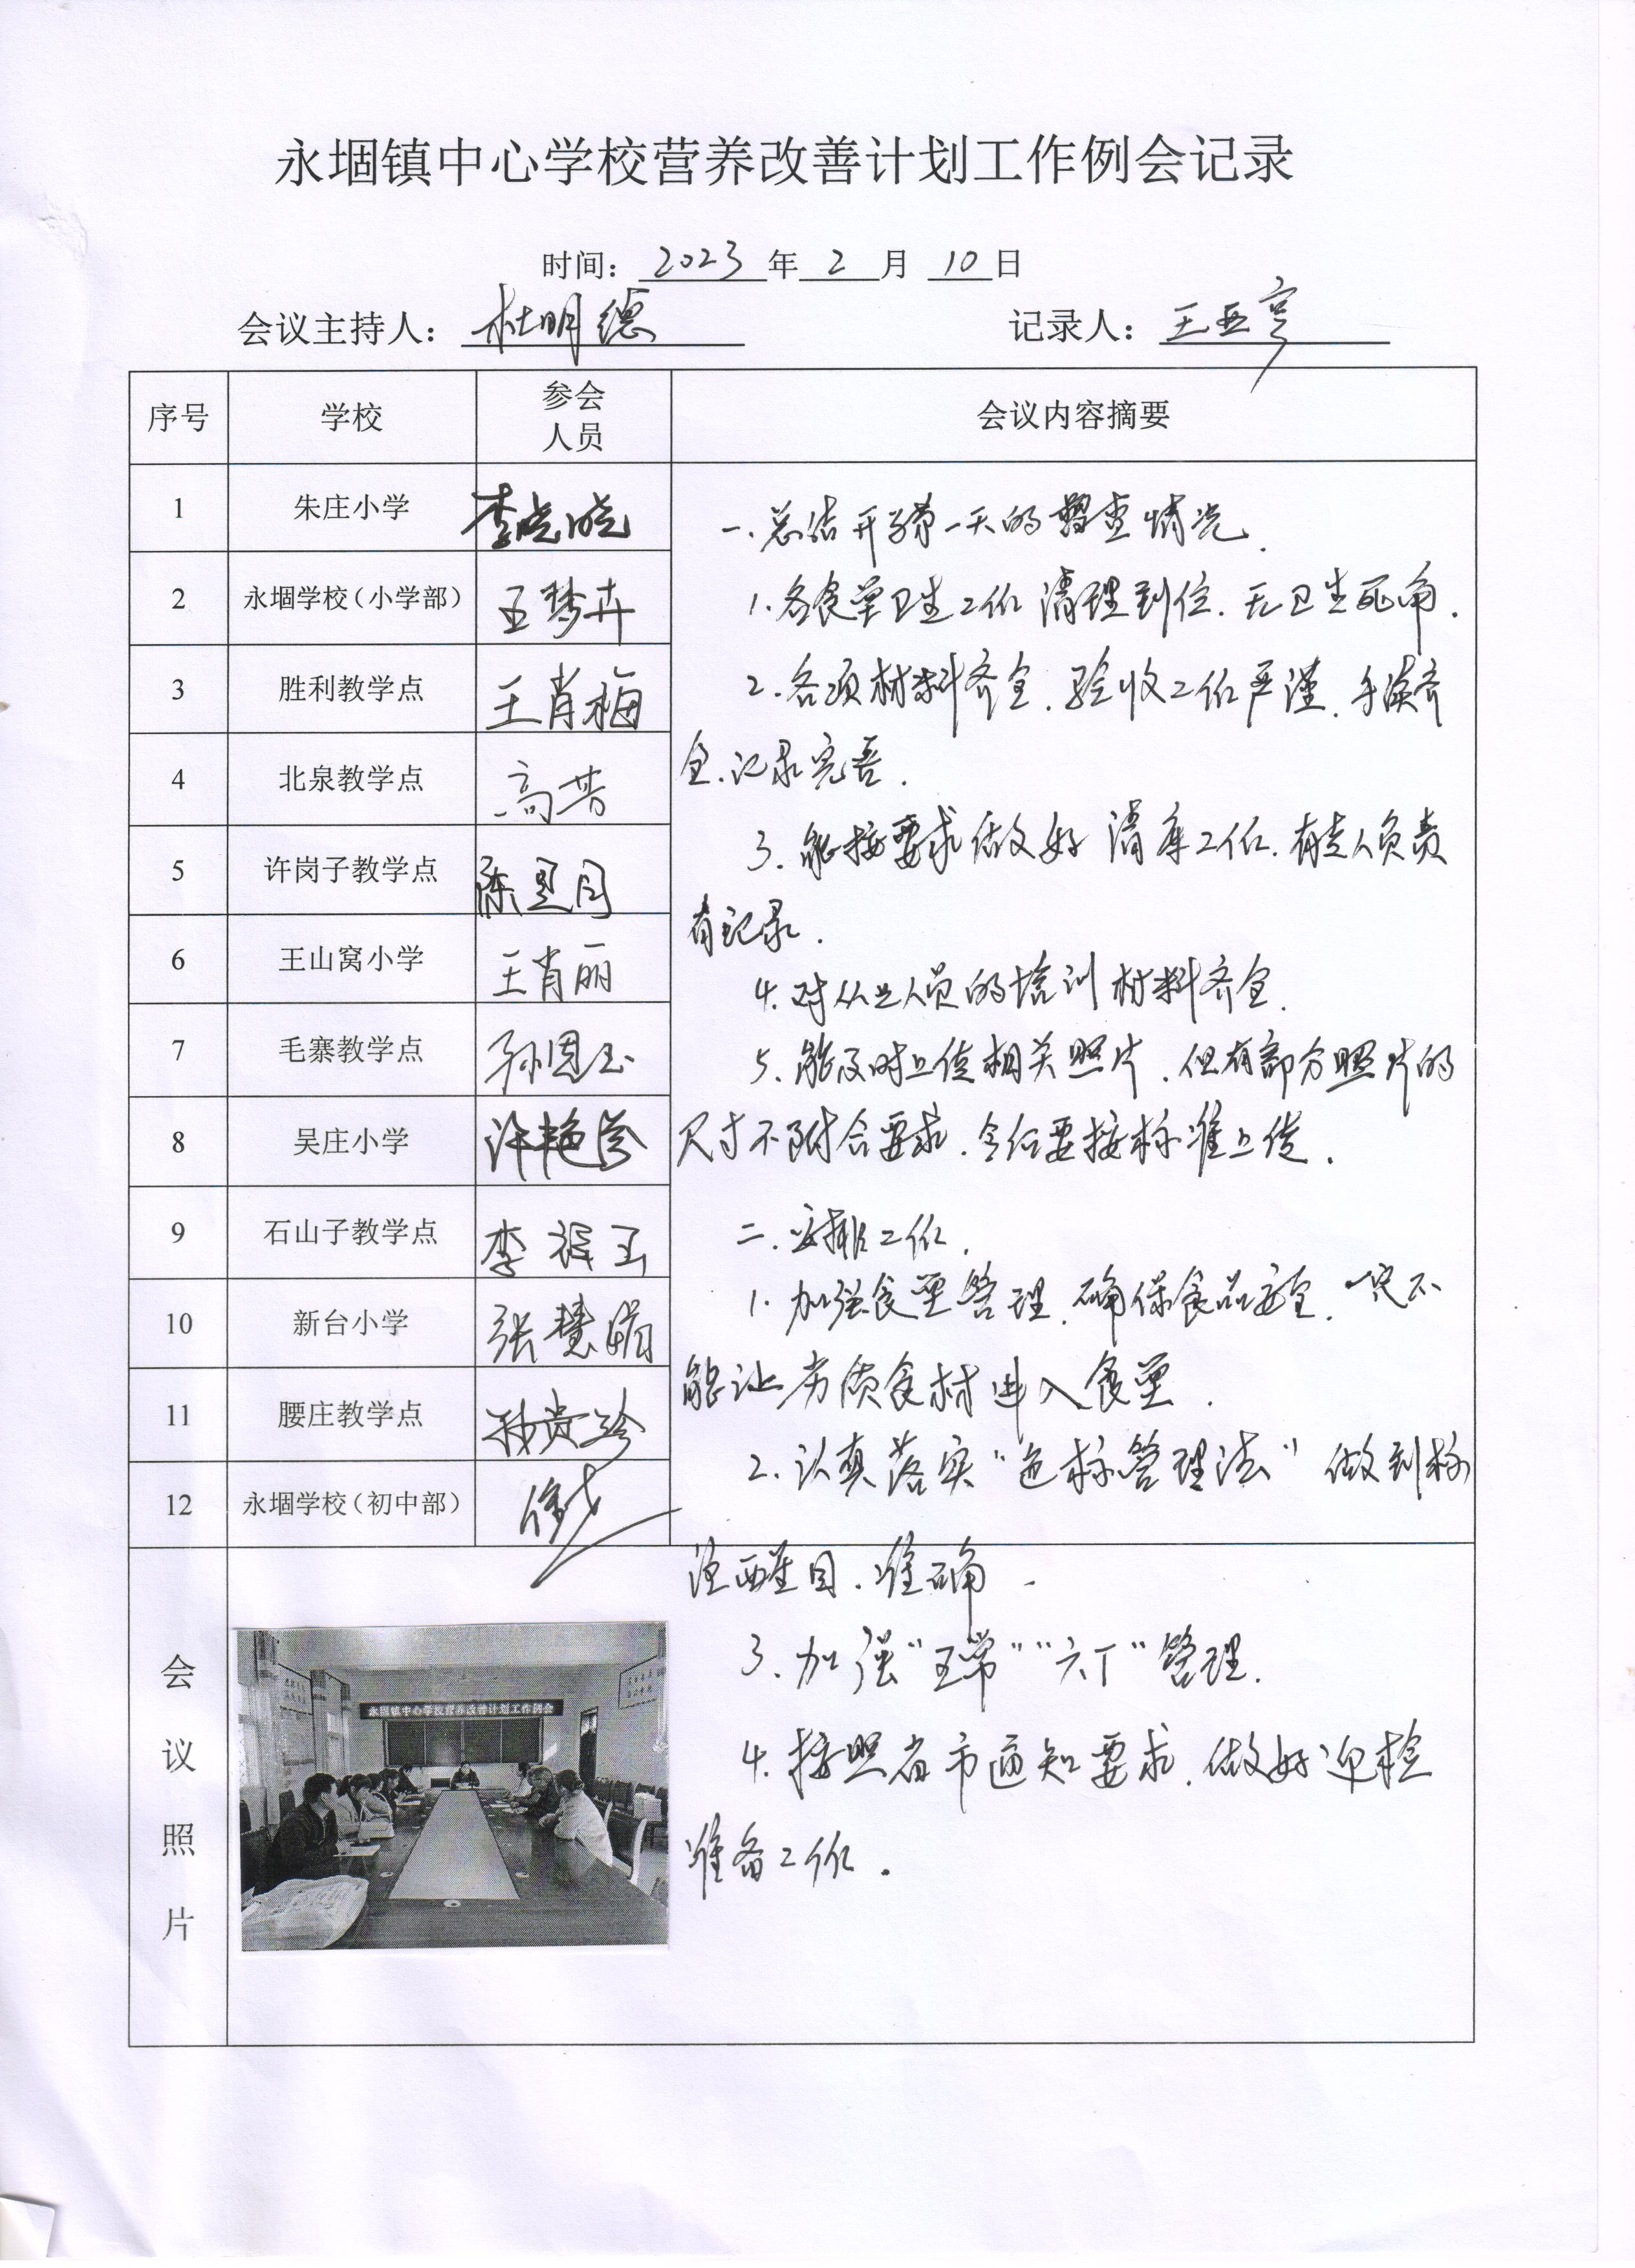 永堌镇中心学校营养改善计划工作例会记录
时间：2023年2月10日
会议主持人：杜明德 记录人：王亚亨
序号 学校 参会人员 会议内容摘要
1 朱庄小学 李晓晓
2 永堌学校（小学部） 王梦卉
3 胜利教学点 王肖梅
4 北泉教学点 高芳
5 许岗子教学点
6 王山窝小学 王肖丽
7 毛寨教学点 孙恩玉
8 吴庄小学 许艳
9 石山子教学点 李 玉
10 新台小学 张慧娟
11 腰庄教学点 孙贵珍
12 永堌学校（初中部）
一.总结开学第一天的督查情况.
1.各食堂卫生工作清理到位.无卫生死角.
2.各项材料齐全.验收工作严谨.手续齐
全.记录完善.
3.能按要求做好清库工作.有专人负责
有记录.
4.对从业人员的培训材料齐全.
5.能及时上传相关照片.但有部分照片的
尺寸不附合要求.今后要按标准上传.
二.安排工作.
1.加强食堂管理.确保食品安全.一定不
能让劣质食材进入食堂.
2.认真落实“色标管理法”做到标
注醒目.准确.
3.加强“五常”“六T”管理.
4.按照省市通知要求.做好迎检
准备工作.
会议照片
永堌镇中心学校营养改善计划工作例会